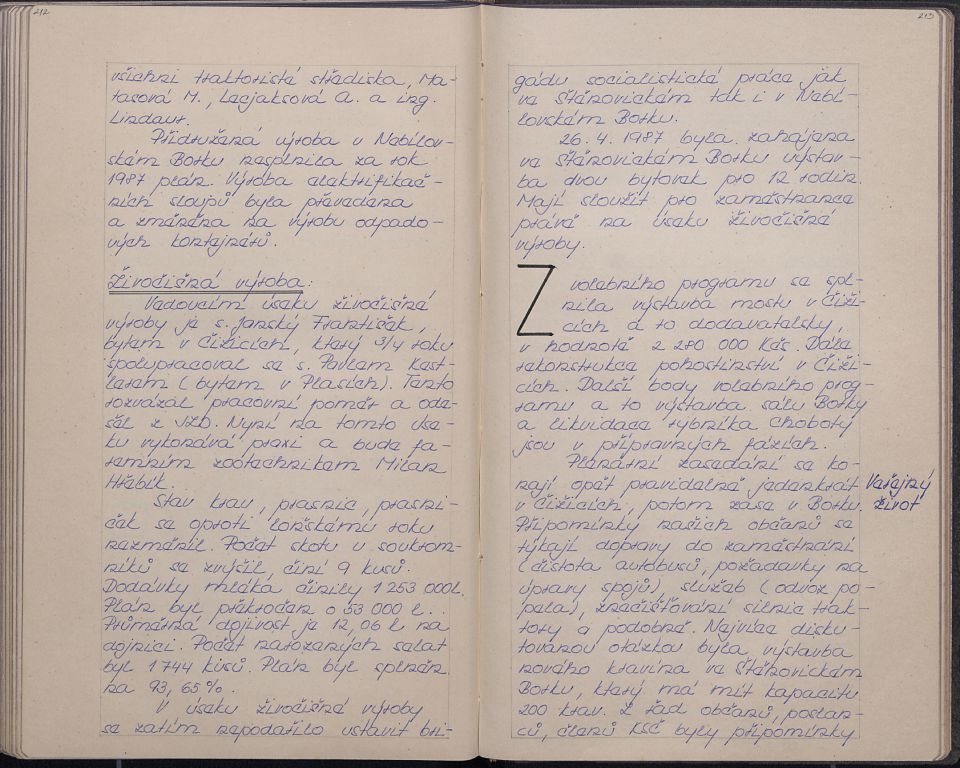 212
všichni traktoristé střediska, Ma-
tasová M., Lecjaksová A. a ing.
Lindaur.
Přidružená výroba v Nebílov-
ském Borku nesplnila za rok
1987 plán. Výroba elektrifikač-
ních sloupů byla převedena
a změněna na výrobu odpado-
vých kontejnérů.
Živočišná výroba:
Vedoucím úseku živočišné
výroby je s. Janský František,
bytem v Čižicích, který 3/4 roku
spolupracoval se s. Pavlem Kest-
lerem (bytem v Plasích). Tento
rozvázal pracovní poměr a ode-
šel z JZD. Nyní na tomto úse-
ku vykonává praxi a bude fa-
remním zootechnikem Milan
Hřebík.
Stav krav, prasnic, prasni-
ček se oproti loňskému roku
nezměnil. Počet skotu u soukrom-
níků se zvýšil, činí 9 kusů.
Dodávky mléka činily 1 253 000 l.
Plán byl překročen o 53 000 l..
Průměrná dojivost je 12,06 l na
dojnici. Počet narozených selat
byl 1 744 kusů. Plán byl splněn
na 93,65%.
V úseku živočišné výroby
se zatím nepodařilo ustavit bri-
213
gádu socialistické práce jak
ve Štěnovickém tak i v Nebí-
lovském Borku.
26. 4. 1987 byla zahájena
ve Štěnovickém Borku výstav-
ba dvou bytovek pro 12 rodin.
Mají sloužit pro zaměstnance
právě na úseku živočišné
výroby.
Z volebního programu se spl-
nila výstavba mostu v Čiži-
cích a to dodavatelsky,
v hodnotě 2 280 000 Kčs. Dále
rekonstrukce pohostinství v Čiži-
cích. Další body volebního prog-
ramu a to výstavba sálu Borky
a likvidace rybníka Choboty
jsou v přípravných fázích.
Plenární zasedání se ko-
nají opět pravidelně jedenkrát
v Čižicích, potom zase v Borku.
Veřejný
život
Připomínky našich občanů se
týkají dopravy do zaměstnání
(čistota autobusů, požadavky na
úpravy spojů), služeb (odvoz po-
pela), znečišťování silnic trak-
tory a podobně. Nejvíce disku-
tovanou otázkou byla výstavba
nového kravína ve Štěnovickém
Borku, který má mít kapacitu
200 krav. Z řad občanů, poslan-
ců, členů KSČ byly připomínky